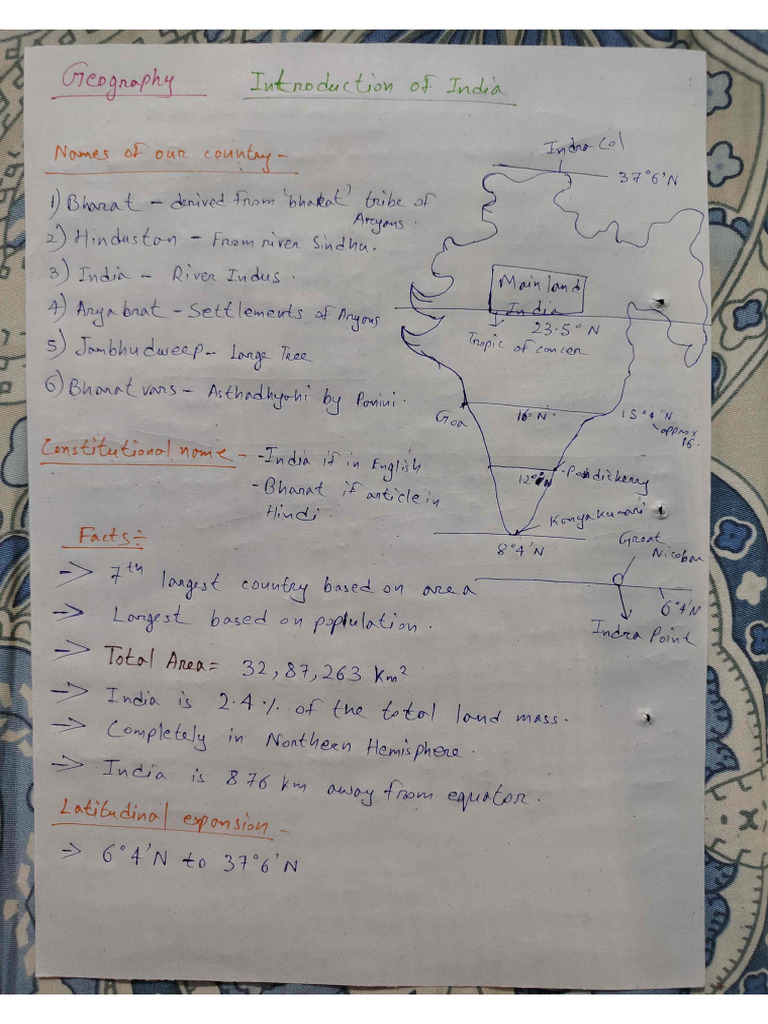 Geography Introduction of India
Names of our country -
1) Bharat - derived from 'bharat' tribe of
Aryans.
2) Hindustan - From river Sindhu.
3) India - River Indus.
4) Aryabrat - Settlements of Aryans
5) Jambhudweep - Large Tree
6) Bharatvars - Asthadhyahi by Panini.
Constitutional name - - India if in English
- Bharat if article in
Hindi.
Indra Col
37°6'N
Mainland
India
23.5°N
Tropic of cancer
Goa
16°N
15°4'N
approx
16.
12°N
Pondicherry
Kanyakumari
8°4'N
Great
Nicobar
6°4'N
Indra Point
Facts ÷
→ 7th largest country based on area
→ Largest based on poplulation.
→ Total Area = 32,87,263 km²
→ India is 2.4% of the total land mass.
→ Completely in Northern Hemisphere.
→ India is 876 km away from equator.
Latitudinal expansion -
→ 6°4'N to 37°6'N